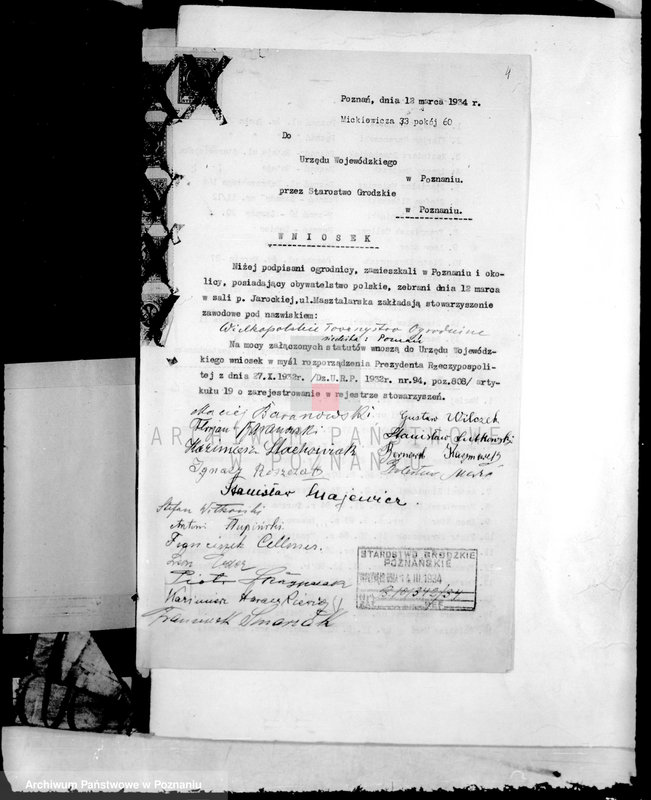 4
Poznań, dnia 12 marca 1934 r.
Mickiewicza 33 pokój 60
Do
Urzędu Wojewódzkiego
w Poznaniu.
przez Starostwo Grodzkie
w Poznaniu.
W N I O S E K
Niżej podpisani ogrodnicy, zamieszkali w Poznaniu i oko-
licy, posiadający obywatelstwo polskie, zebrani dnia 12 marca
w sali p. Jarockiej,ul.Masztalarska zakładają stowarzyszenie
zawodowe pod nazwiskiem:
Wielkopolskie Towarzystwo Ogrodnicze
siedziba : Poznań
Na mocy załączonych statutów wnoszą do Urzędu Wojewódz-
kiego wniosek w myśl rozporządzenia Prezydenta Rzeczypospoli-
tej z dnia 27.X.1932r. /Dz.U.R.P. 1932r. nr.94, poz.808/ arty-
kułu 19 o zarejestrowanie w rejestrze stowarzyszeń.
Maciej Baranowski
Gustaw Wilczek
Florjan Baranowski
Stanisław
ARCHIWUM PAŃSTWOWE
W POZNANIU
Kazimierz
Bernard
Ignacy
Stanisław Majewicz.
Stefan Witkowski
Antoni Słupiński
Franciszek Cellmer.
Leon
Piotr
Kazimierz
Franciszek
STAROSTWO GRODZKIE
POZNAŃSKIE
14 III. 1934
Archiwum Państwowe w Poznaniu